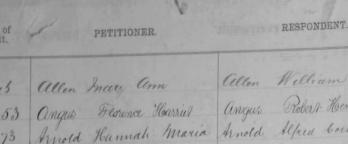 of PETITIONER. RESPONDENT.
t.
3 Allen Mary Ann Allen William
53 Angus Florence Harriet Angus Robert
73 Arnold Hannah Maria Arnold Alfred